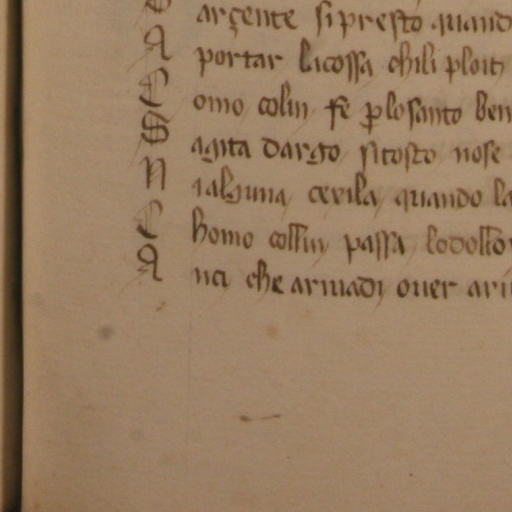 argente si presto quand
A portar licossa chili ploit
C omo colin fe p losanto ben
S agita dargo si tosto nose
N ialguna cevila quando la
C homo collin passa lodollo
A nci che arivadi over ari